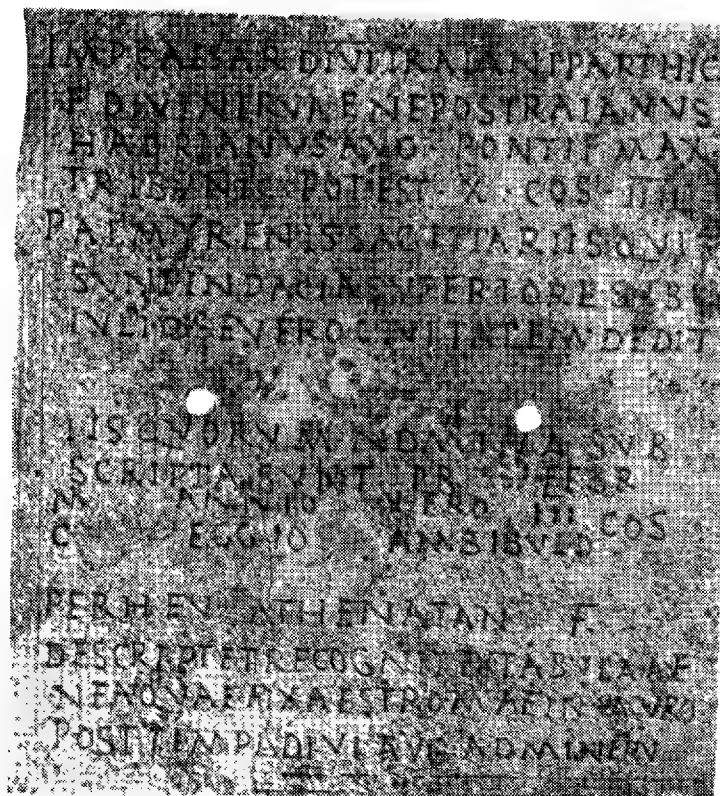 IMP CAESAR DIVI TRAIANI PARTHIC
F DIVI NERVAE NEPOS TRAIANVS
HADRIANVS AVG PONTIF MAX
TRIBVNIC POTEST · X · COS III
PALMYRENIS SAGITTARIIS QVI
SVNT IN DACIA SVPERIORE SVB
IVLIO SEVERO CIVITATEM DEDIT
IIS QVORVM NOMINA SVB
SCRIPTA SVNT PR FEBR
M ANNIO VERO III COS
C EGGIO AMBIBVLO
ATHENATAN F
DESCRIPT ET RECOGNIT EX TABVLA AE
NEA QVAE FIXA EST ROMAE IN MVRO
POST TEMPL DIVI AVG AD MINERV